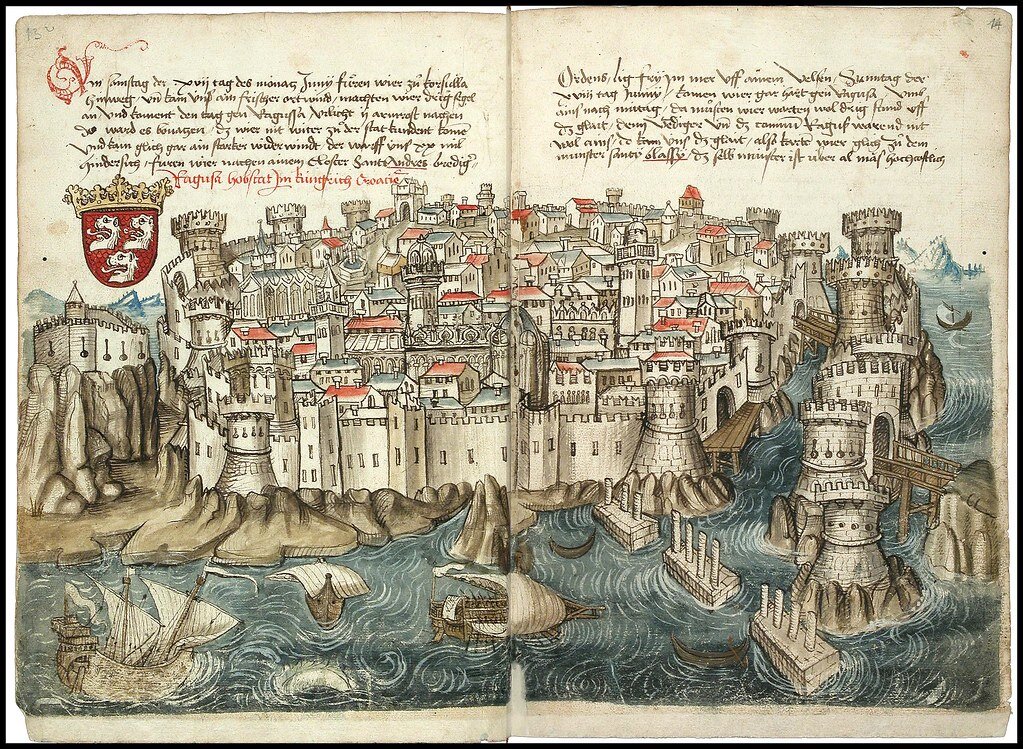 132
14
Vn samstag der xvij tag des monatz Junij fůren wier zů korsulla
hinweg vnd kam vnß ain frischer ort wind, machten wier die segel
an vnd kament den tag gen Ragussa
do ward es dz wier nit witer zů der stat kundent kome
vnd kam glich gar ain starker wider wind der warff vnß xxx mil
hindersich, fůren wier nachen ainem Closter Santt Andres bredig
Ragusa hobstat Jm küngrich Croacie
Ordens, lig fry Jm mer vff ainem velsen, Sunntag der
xviij tag Junij komen wier gar hart gen Ragusa, vmb
ains nach mittag, da můsten wier warten wol drig stund vff
dz glait, denn Vediger vnd dz Ragus warend nit
wol ains, do kam vnß dz glait, also kartt wier glich zů dem
münster santt blassy, dz selb münster ist über al mas hochzitlich